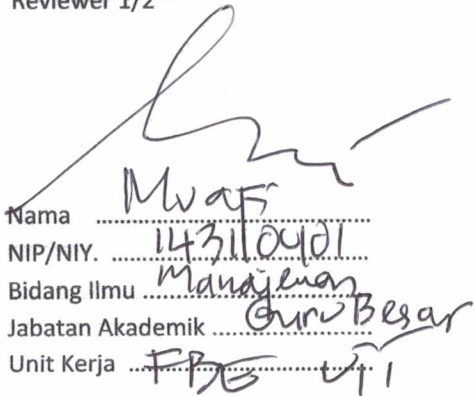 Reviewer 1/2
Nama Muafi
NIP/NIY. 143110401
Bidang Ilmu Manajemen
Jabatan Akademik Guru Besar
Unit Kerja FBE UII